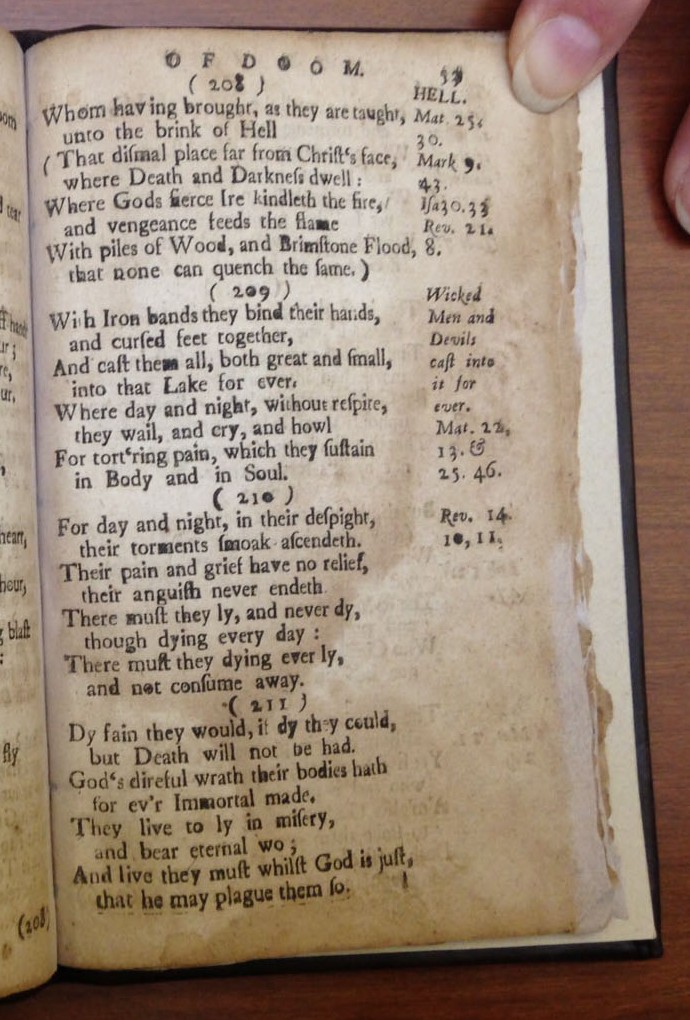 OF DOOM.
(208)
HELL.
Whom having brought, as they are taught,
Mat. 25.
unto the brink of Hell
30.
(That diſmal place far from Chriſt's face,
Mark 9.
where Death and Darkneſs dwell:
43.
Where Gods fierce Ire kindleth the fire,
Iſa 30. 33
and vengeance feeds the flame
Rev. 21.
With piles of Wood, and Brimſtone Flood,
8.
that none can quench the ſame.)
(209)
Wicked
With Iron bands they bind their hands,
Men and
and curſed feet together,
Devils
And caſt them all, both great and ſmall,
caſt into
into that Lake for ever.
it for
Where day and night, without reſpite,
ever.
they wail, and cry, and howl
Mat. 22,
For tort'ring pain, which they ſuſtain
13. &
in Body and in Soul.
25. 46.
(210)
For day and night, in their deſpight,
Rev. 14.
their torments ſmoak aſcendeth.
10, 11.
Their pain and grief have no relief,
their anguiſh never endeth
There muſt they ly, and never dy,
though dying every day:
There muſt they dying ever ly,
and not conſume away.
(211)
Dy fain they would, if dy they could,
but Death will not be had.
God's direful wrath their bodies hath
for ev'r Immortal made.
They live to ly in miſery,
and bear eternal wo;
And live they muſt whilſt God is juſt,
that he may plague them ſo.
(208)